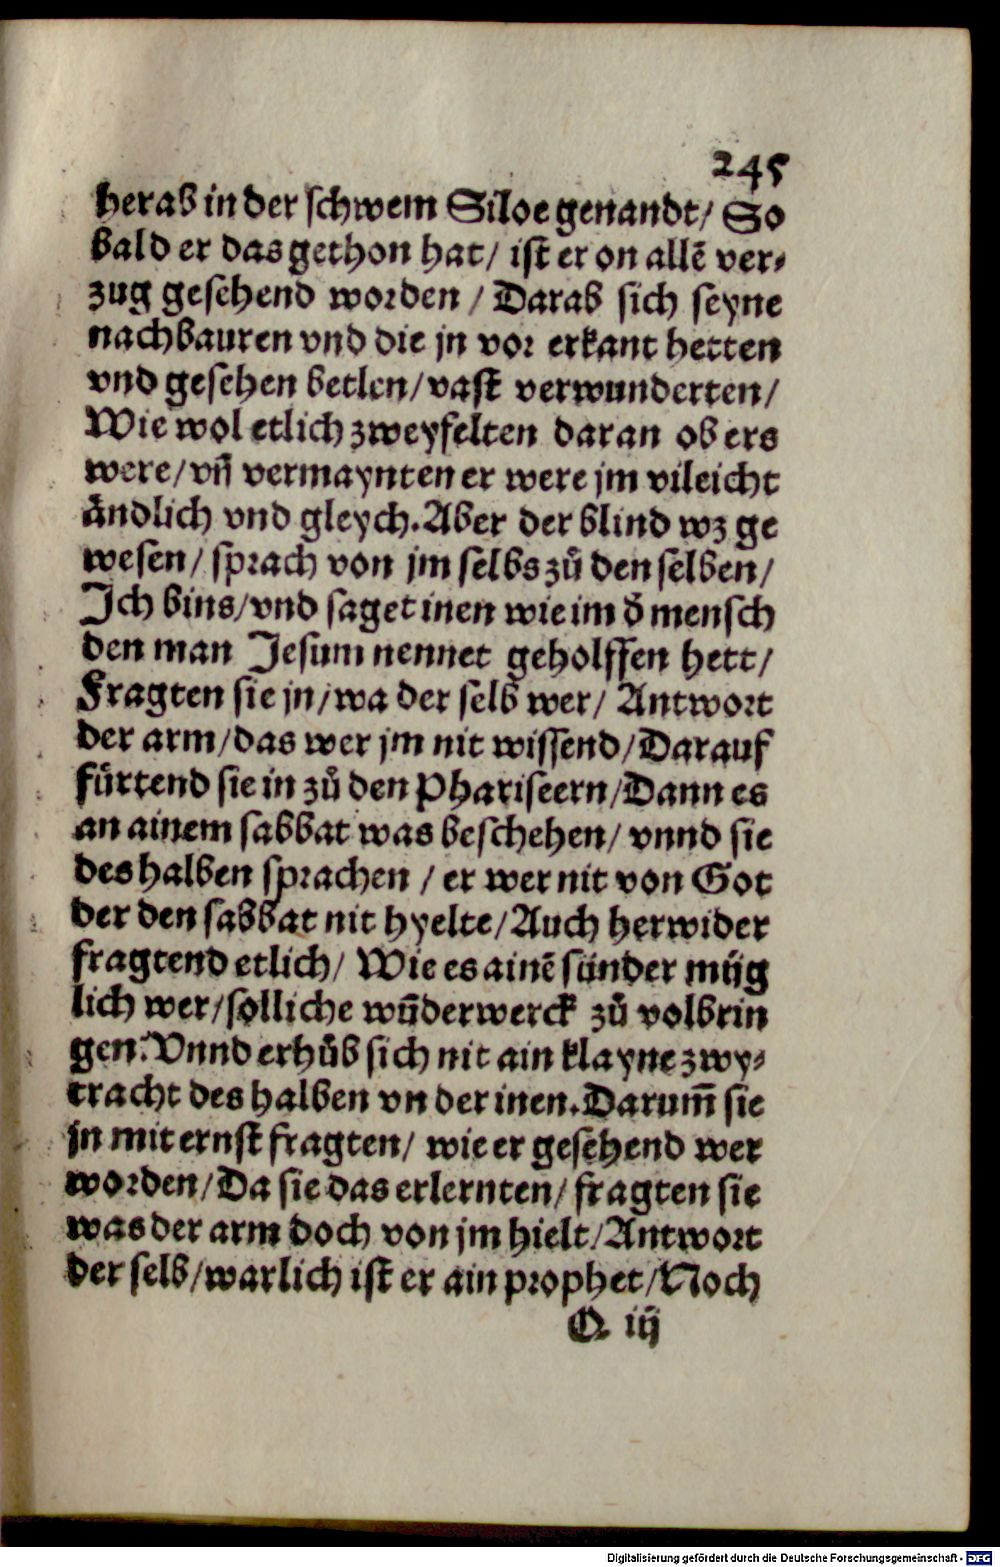 245
herab in der schwem Siloe genandt/ So
bald er das gethon hat/ ist er on allē ver⸗
zug gesehend worden / Darab sich seyne
nachbauren vnd die jn vor erkant hetten
vnd gesehen betlen/vast verwunderten/
Wie wol etlich zweyfelten daran ob ers
were/vñ vermaynten er were jm vileicht
åndlich vnd gleych. Aber der blind wz ge
wesen/ sprach von jm selbs zů den selben/
Ich bins/vnd saget inen wie im d̄ mensch
den man Jesum nennet geholffen hett/
Fragten sie jn/wa der selb wer/ Antwort
der arm/das wer jm nit wissend/Darauf
fůrtend sie in zů den Phariseern/Dann es
an ainem sabbat was beschehen/ vnnd sie
des halben sprachen / er wer nit von Got
der den sabbat nit hyelte/Auch herwider
fragtend etlich/ Wie es ainē sünder müg
lich wer/solliche wūderwerck zů volbrin
gen. Vnnd erhůb sich nit ain klayne zwy⸗
tracht des halben vn der inen. Darum̄ sie
jn mit ernst fragten/ wie er gesehend wer
worden/Da sie das erlernten/fragten sie
was der arm doch von jm hielt/Antwort
der selb/warlich ist er ain prophet/Noch
Q iij
Digitalisierung gefördert durch die Deutsche Forschungsgemeinschaft - DFG